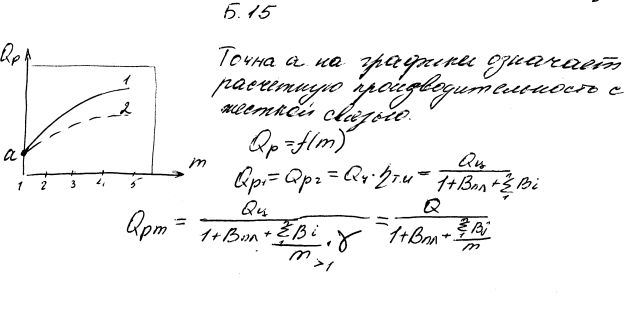 Б. 15
Qp
1
2
a
m
1 2 3 4 5
Точка а на графики означает
расчетную производительность с
жесткой связью.
Qp = f(m)
Qp1 = Qp2 = Qч · ηт.и = Qц / (1 + Bпл + Σ Bi)
Qpm = Qц / (1 + Bпл + (Σ Bi / m) · γ) = Q / (1 + Bпл + Σ Bi / m)
>1